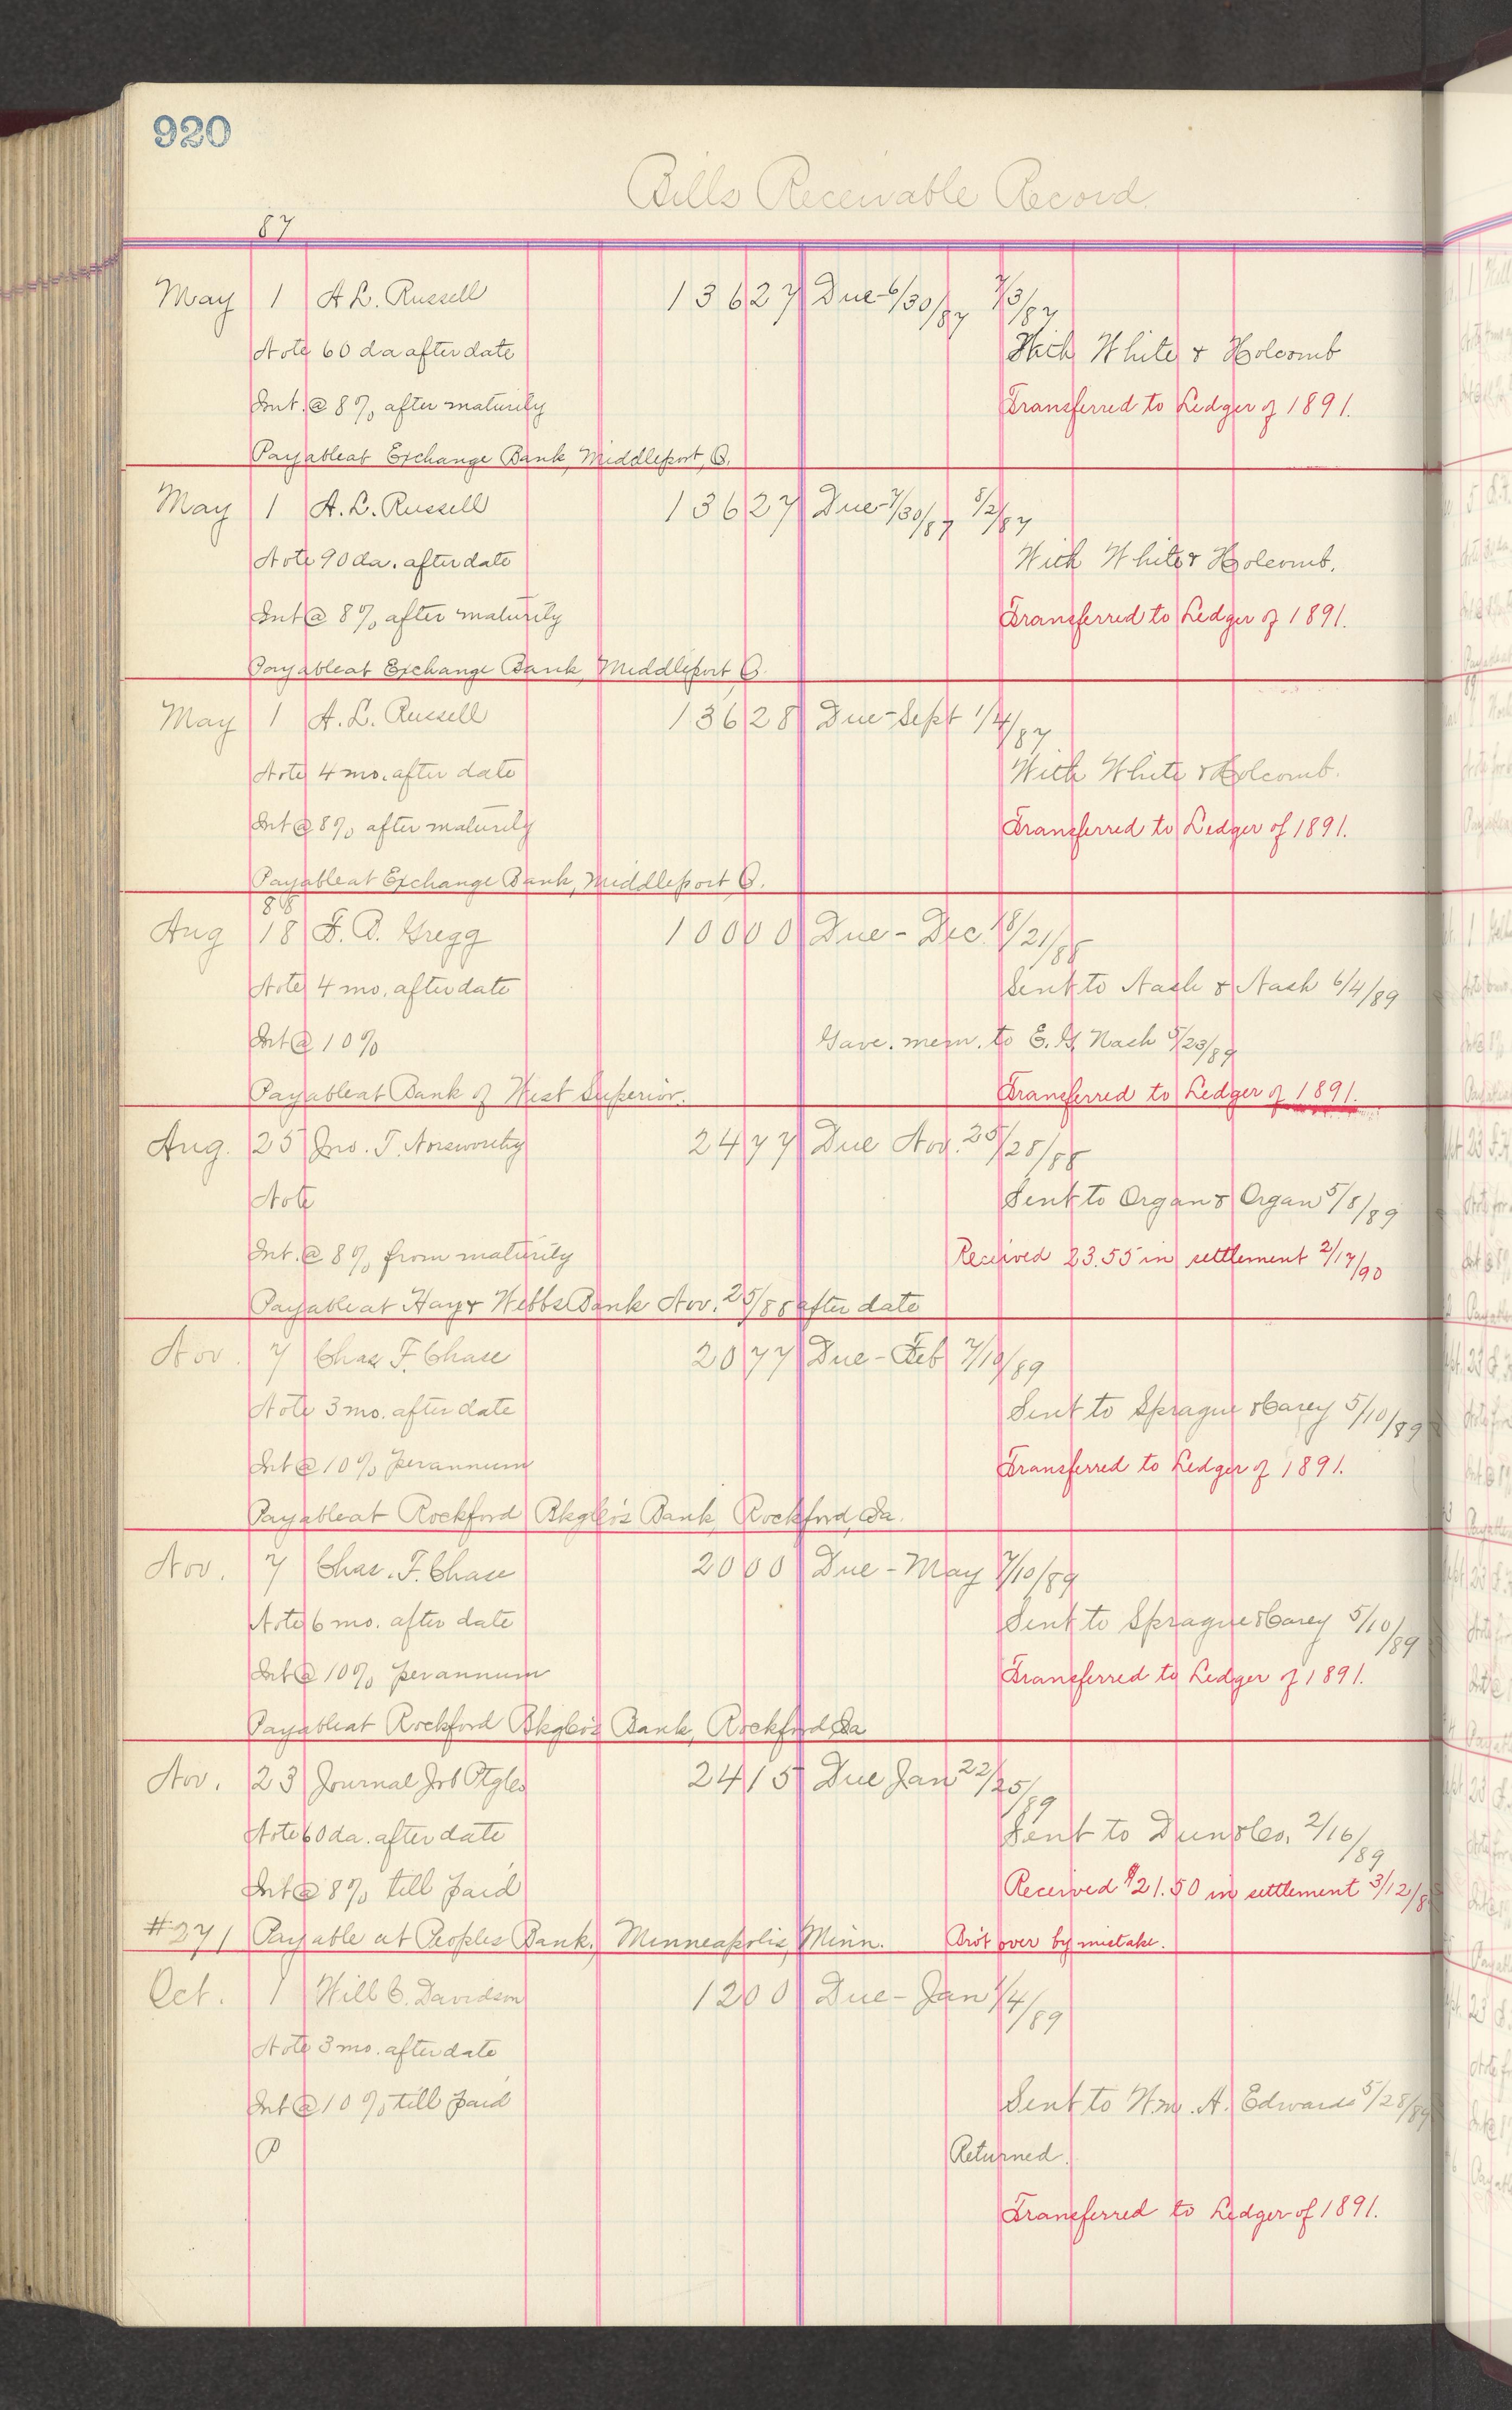 920
Bills Receivable Record.
87
May 1 A L. Russell 136 27 Due 6/30/87 7/3/87
Note 60 da after date With White & Holcomb
Int. @ 8% after maturity Transferred to Ledger of 1891.
Payable at Exchange Bank, Middleport, O.
May 1 A. L. Russell 136 27 Due 7/30/87 8/2/87
Note 90 da. after date With White & Holcomb.
Int @ 8% after maturity Transferred to Ledger of 1891.
Payable at Exchange Bank, Middleport O.
May 1 A. L. Russell 136 28 Due - Sept 1/4/87
Note 4 mo. after date With White & Holcomb.
Int @ 8% after maturity Transferred to Ledger of 1891.
Payable at Exchange Bank, Middleport O.
88
Aug 18 F. D. Gregg 100 00 Due - Dec. 18/21/88
Note 4 mo. after date Sent to Nash & Nash 6/4/89
Int @ 10% Gave. mem. to E. G. Nash 5/23/89
Payable at Bank of West Superior. Transferred to Ledger of 1891.
Aug. 25 Jno. T. Norsworthy 24 77 Due Nov. 25/28/88
Note Sent to Organ & Organ 5/8/89
Int. @ 8% from maturity Received 23.55 in settlement 2/17/90
Payable at Hay & Webbs Bank Nov. 25/88 after date
Nov. 7 Chas F. Chase 20 77 Due - Feb 7/10/89
Note 3 mo. after date Sent to Sprague & Carey 5/10/89
Int @ 10% per annum Transferred to Ledger of 1891.
Payable at Rockford Bkg Co's Bank, Rockford, Ia.
Nov. 7 Chas. F. Chase 20 00 Due - May 7/10/89
Note 6 mo. after date Sent to Sprague & Carey 5/10/89
Int @ 10% per annum Transferred to Ledger of 1891.
Payable at Rockford Bkg Co's Bank, Rockford, Ia
Nov. 23 Journal Job Ptg Co 24 15 Due Jan 22/25/89
Note 60 da. after date Sent to Dun & Co. 2/16/89
Int @ 8% till paid Received $21.50 in settlement 3/12/8
#271 Payable at Peoples Bank, Minneapolis, Minn. Bro't over by mistake.
Oct. 1 Will C. Davidson 12 00 Due - Jan 1/4/89
Note 3 mo. after date
Int @ 10% till paid Sent to Wm. A. Edwards 5/28/89
P Returned.
Transferred to Ledger of 1891.